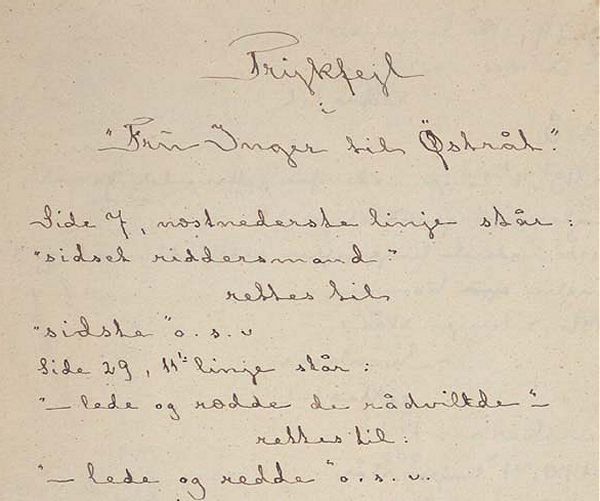 Trykfejl
i
"Fru Inger til Østråt."
Side 7, næstnederste linje står:
"sidset riddersmand"
rettes til
"sidste" o. s. v
Side 29, 11te linje står:
"— lede og rædde de rådvildde" —
rettes til:
"— lede og redde" o. s. v.